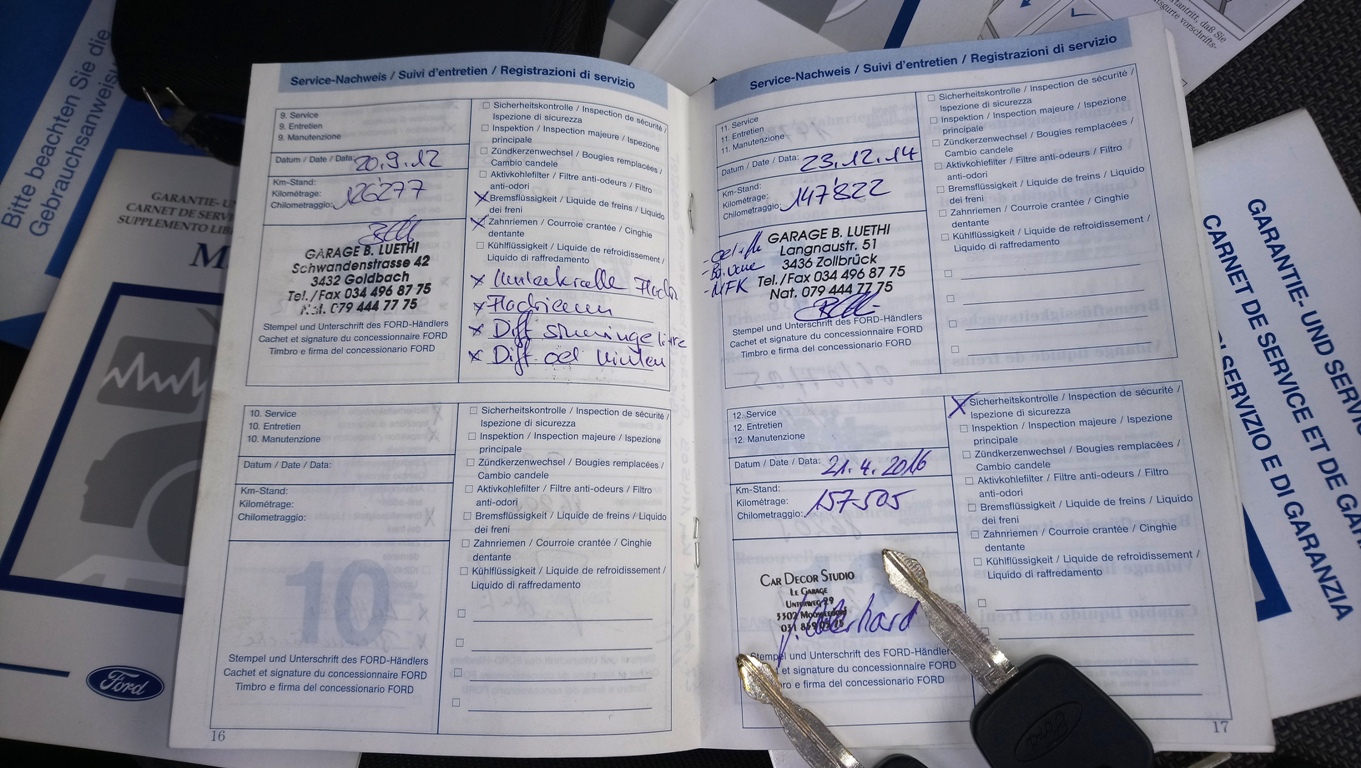 Bitte beachten Sie die
Gebrauchsanweis
GARANTIE- UN
CARNET DE SERV
SUPPLEMENTO LIB
M
Ford
Service-Nachweis / Suivi d'entretien / Registrazioni di servizio
9. Service
9. Entretien
9. Manutenzione
Datum / Date / Data: 20.9.12
Km-Stand:
Kilométrage: 126277
Chilometraggio:
GARAGE B. LUETHI
Schwandenstrasse 42
3432 Goldbach
Tel./Fax 034 496 87 75
Nat. 079 444 77 75
Stempel und Unterschrift des FORD-Händlers
Cachet et signature du concessionnaire FORD
Timbro e firma del concessionario FORD
☐ Sicherheitskontrolle / Inspection de sécurité /
Ispezione di sicurezza
☐ Inspektion / Inspection majeure / Ispezione
principale
☐ Zündkerzenwechsel / Bougies remplacées /
Cambio candele
☐ Aktivkohlefilter / Filtre anti-odeurs / Filtro
anti-odori
X Bremsflüssigkeit / Liquide de freins / Liquido
dei freni
X Zahnriemen / Courroie crantée / Cinghie
dentante
☐ Kühlflüssigkeit / Liquide de refroidissement /
Liquido di raffredamento
X
X Flachriemen
X Diff
X Diff oel hinten
10. Service
10. Entretien
10. Manutenzione
Datum / Date / Data:
Km-Stand:
Kilométrage:
Chilometraggio:
10
Stempel und Unterschrift des FORD-Händlers
Cachet et signature du concessionnaire FORD
Timbro e firma del concessionario FORD
☐ Sicherheitskontrolle / Inspection de sécurité /
Ispezione di sicurezza
☐ Inspektion / Inspection majeure / Ispezione
principale
☐ Zündkerzenwechsel / Bougies remplacées /
Cambio candele
☐ Aktivkohlefilter / Filtre anti-odeurs / Filtro
anti-odori
☐ Bremsflüssigkeit / Liquide de freins / Liquido
dei freni
☐ Zahnriemen / Courroie crantée / Cinghie
dentante
☐ Kühlflüssigkeit / Liquide de refroidissement /
Liquido di raffredamento
16
Service-Nachweis / Suivi d'entretien / Registrazioni di servizio
11. Service
11. Entretien
11. Manutenzione
Datum / Date / Data: 23.12.14
Km-Stand:
Kilométrage: 147822
Chilometraggio:
- MFK
GARAGE B. LUETHI
Langnaustr. 51
3436 Zollbrück
Tel./Fax 034 496 87 75
Nat. 079 444 77 75
Stempel und Unterschrift des FORD-Händlers
Cachet et signature du concessionnaire FORD
Timbro e firma del concessionario FORD
☐ Sicherheitskontrolle / Inspection de sécurité /
Ispezione di sicurezza
☐ Inspektion / Inspection majeure / Ispezione
principale
☐ Zündkerzenwechsel / Bougies remplacées /
Cambio candele
☐ Aktivkohlefilter / Filtre anti-odeurs / Filtro
anti-odori
☐ Bremsflüssigkeit / Liquide de freins / Liquido
dei freni
☐ Zahnriemen / Courroie crantée / Cinghie
dentante
☐ Kühlflüssigkeit / Liquide de refroidissement /
Liquido di raffredamento
12. Service
12. Entretien
12. Manutenzione
Datum / Date / Data: 21.4.2016
Km-Stand:
Kilométrage: 157505
Chilometraggio:
CAR DECOR STUDIO
LE GARAGE
Stempel und Unterschrift des FORD-Händlers
et et signature du concessionnaire FORD
bro e firma del concessionario FORD
X Sicherheitskontrolle / Inspection de sécurité /
Ispezione di sicurezza
☐ Inspektion / Inspection majeure / Ispezione
principale
☐ Zündkerzenwechsel / Bougies remplacées /
Cambio candele
☐ Aktivkohlefilter / Filtre anti-odeurs / Filtro
anti-odori
☐ Bremsflüssigkeit / Liquide de freins / Liquido
dei freni
☐ Zahnriemen / Courroie crantée / Cinghie
dentante
☐ Kühlflüssigkeit / Liquide de refroidissement /
Liquido di raffredamento
17
antritt, daß Sie
gurte vorschrifts-
GARANTIE- UND SERVIC
CARNET DE SERVICE ET DE GAR
I SERVIZIO E DI GARANZIA
Ford